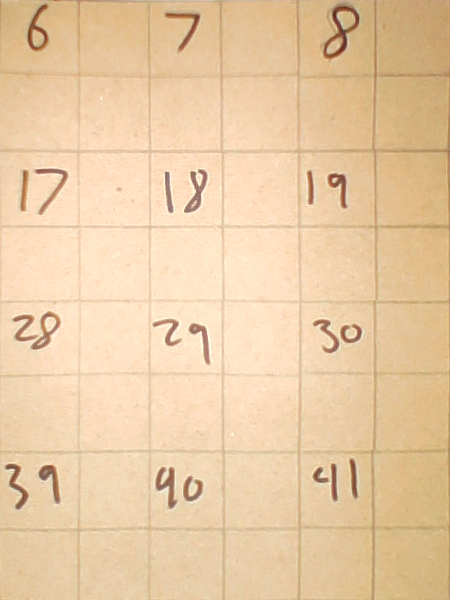 6 7 8
17 18 19
28 29 30
39 40 41